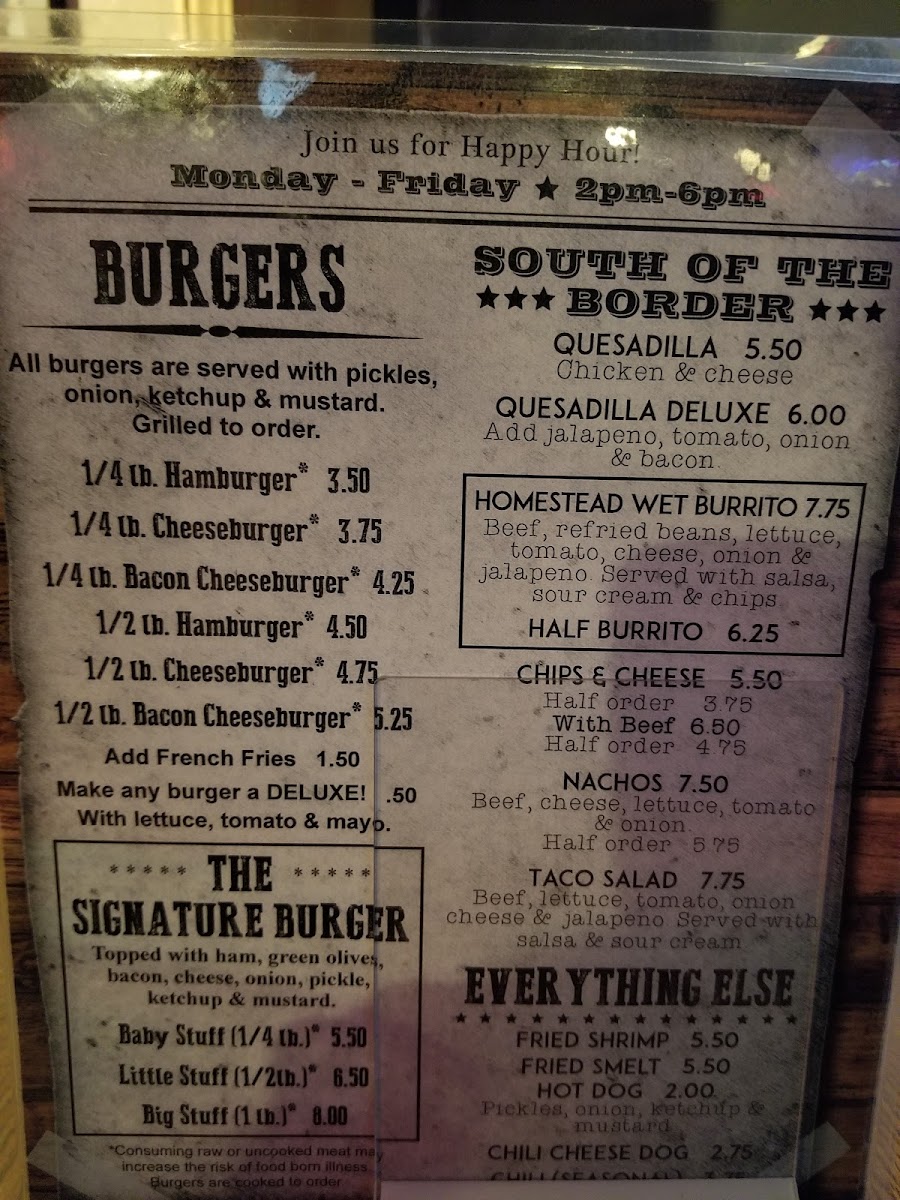 Join us for Happy Hour!
Monday - Friday ★ 2pm-6pm
BURGERS
All burgers are served with pickles,
onion, ketchup & mustard.
Grilled to order.
1/4 lb. Hamburger* 3.50
1/4 lb. Cheeseburger* 3.75
1/4 lb. Bacon Cheeseburger* 4.25
1/2 lb. Hamburger* 4.50
1/2 lb. Cheeseburger* 4.75
1/2 lb. Bacon Cheeseburger* 5.25
Add French Fries 1.50
Make any burger a DELUXE! .50
With lettuce, tomato & mayo.
***** THE *****
SIGNATURE BURGER
Topped with ham, green olives,
bacon, cheese, onion, pickle,
ketchup & mustard.
Baby Stuff (1/4 lb.)* 5.50
Little Stuff (1/2lb.)* 6.50
Big Stuff (1 lb.)* 8.00
*Consuming raw or uncooked meat may
increase the risk of food born illness.
Burgers are cooked to order
SOUTH OF THE
★★★ BORDER ★★★
QUESADILLA 5.50
Chicken & cheese
QUESADILLA DELUXE 6.00
Add jalapeno, tomato, onion
& bacon.
HOMESTEAD WET BURRITO 7.75
Beef, refried beans, lettuce,
tomato, cheese, onion &
jalapeno. Served with salsa,
sour cream & chips
HALF BURRITO 6.25
CHIPS & CHEESE 5.50
Half order 3.75
With Beef 6.50
Half order 4.75
NACHOS 7.50
Beef, cheese, lettuce, tomato
& onion.
Half order 5.75
TACO SALAD 7.75
Beef, lettuce, tomato, onion
cheese & jalapeno. Served with
salsa & sour cream
EVERYTHING ELSE
★ ★ ★ ★ ★ ★ ★ ★ ★ ★ ★ ★ ★ ★
FRIED SHRIMP 5.50
FRIED SMELT 5.50
HOT DOG 2.00
Pickles, onion, ketchup &
mustard
CHILI CHEESE DOG 2.75
CHILI (SEASONAL) 3.75